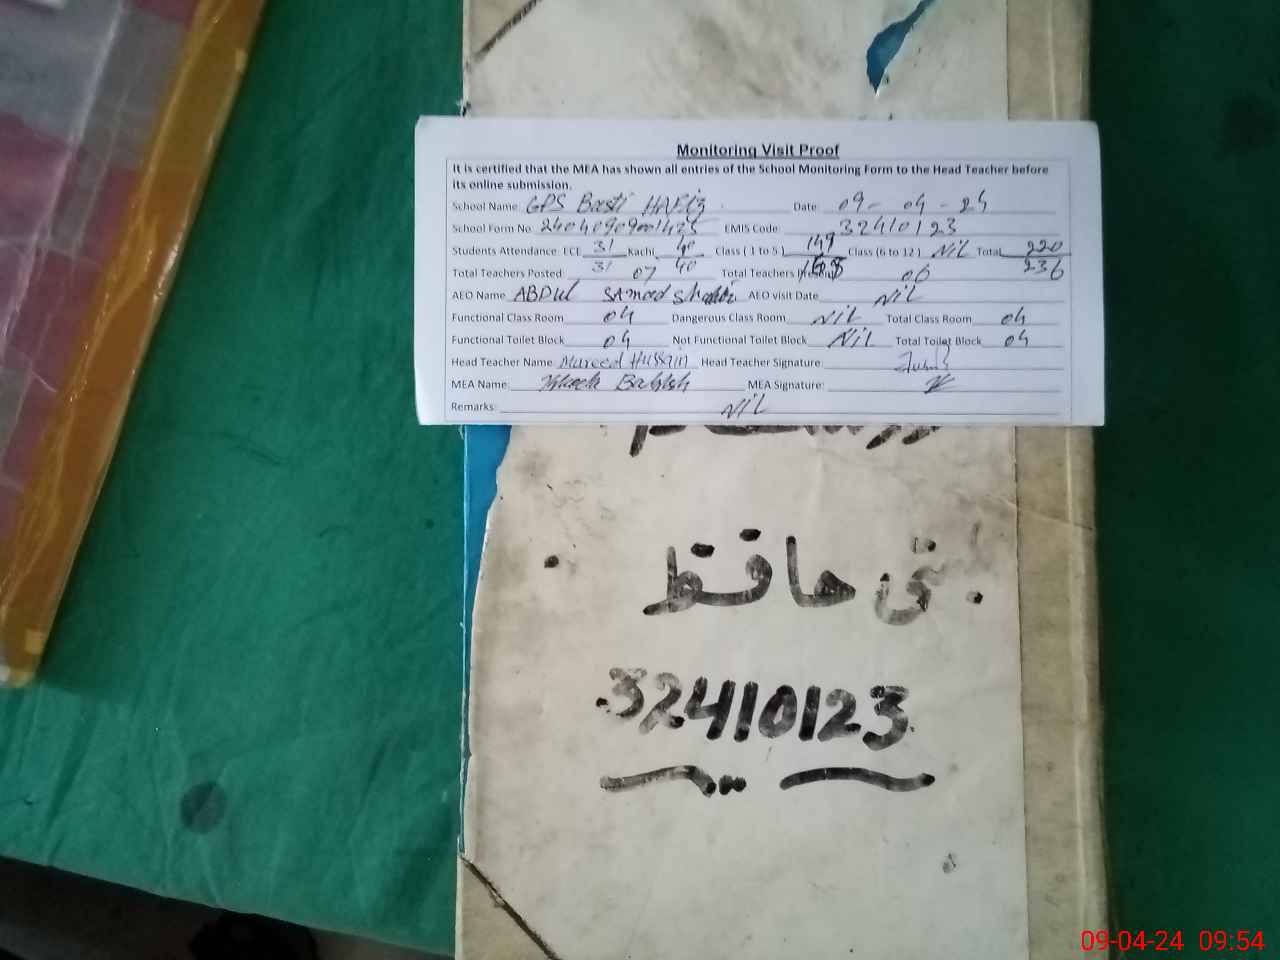 Monitoring Visit Proof
It is certified that the MEA has shown all entries of the School Monitoring Form to the Head Teacher before
its online submission.
School Name GPS Basti HAFiz Date: 09-04-24
School Form No. EMIS Code: 32410123
Students Attendance: ECE 31 Kachi 40 Class ( 1 to 5 ) 149 Class (6 to 12 ) Nil Total 220
31 40 236
Total Teachers Posted: 07 Total Teachers 06
AEO Name ABDul SAmeed AEO visit Date Nil
Functional Class Room 04 Dangerous Class Room NiL Total Class Room 04
Functional Toilet Block 04 Not Functional Toilet Block NiL Total Toilet Block 04
Head Teacher Name: Mureed Hussain Head Teacher Signature:
MEA Name: Bakhsh MEA Signature:
Remarks: NiL
بستی حافظ
32410123
09-04-24 09:54